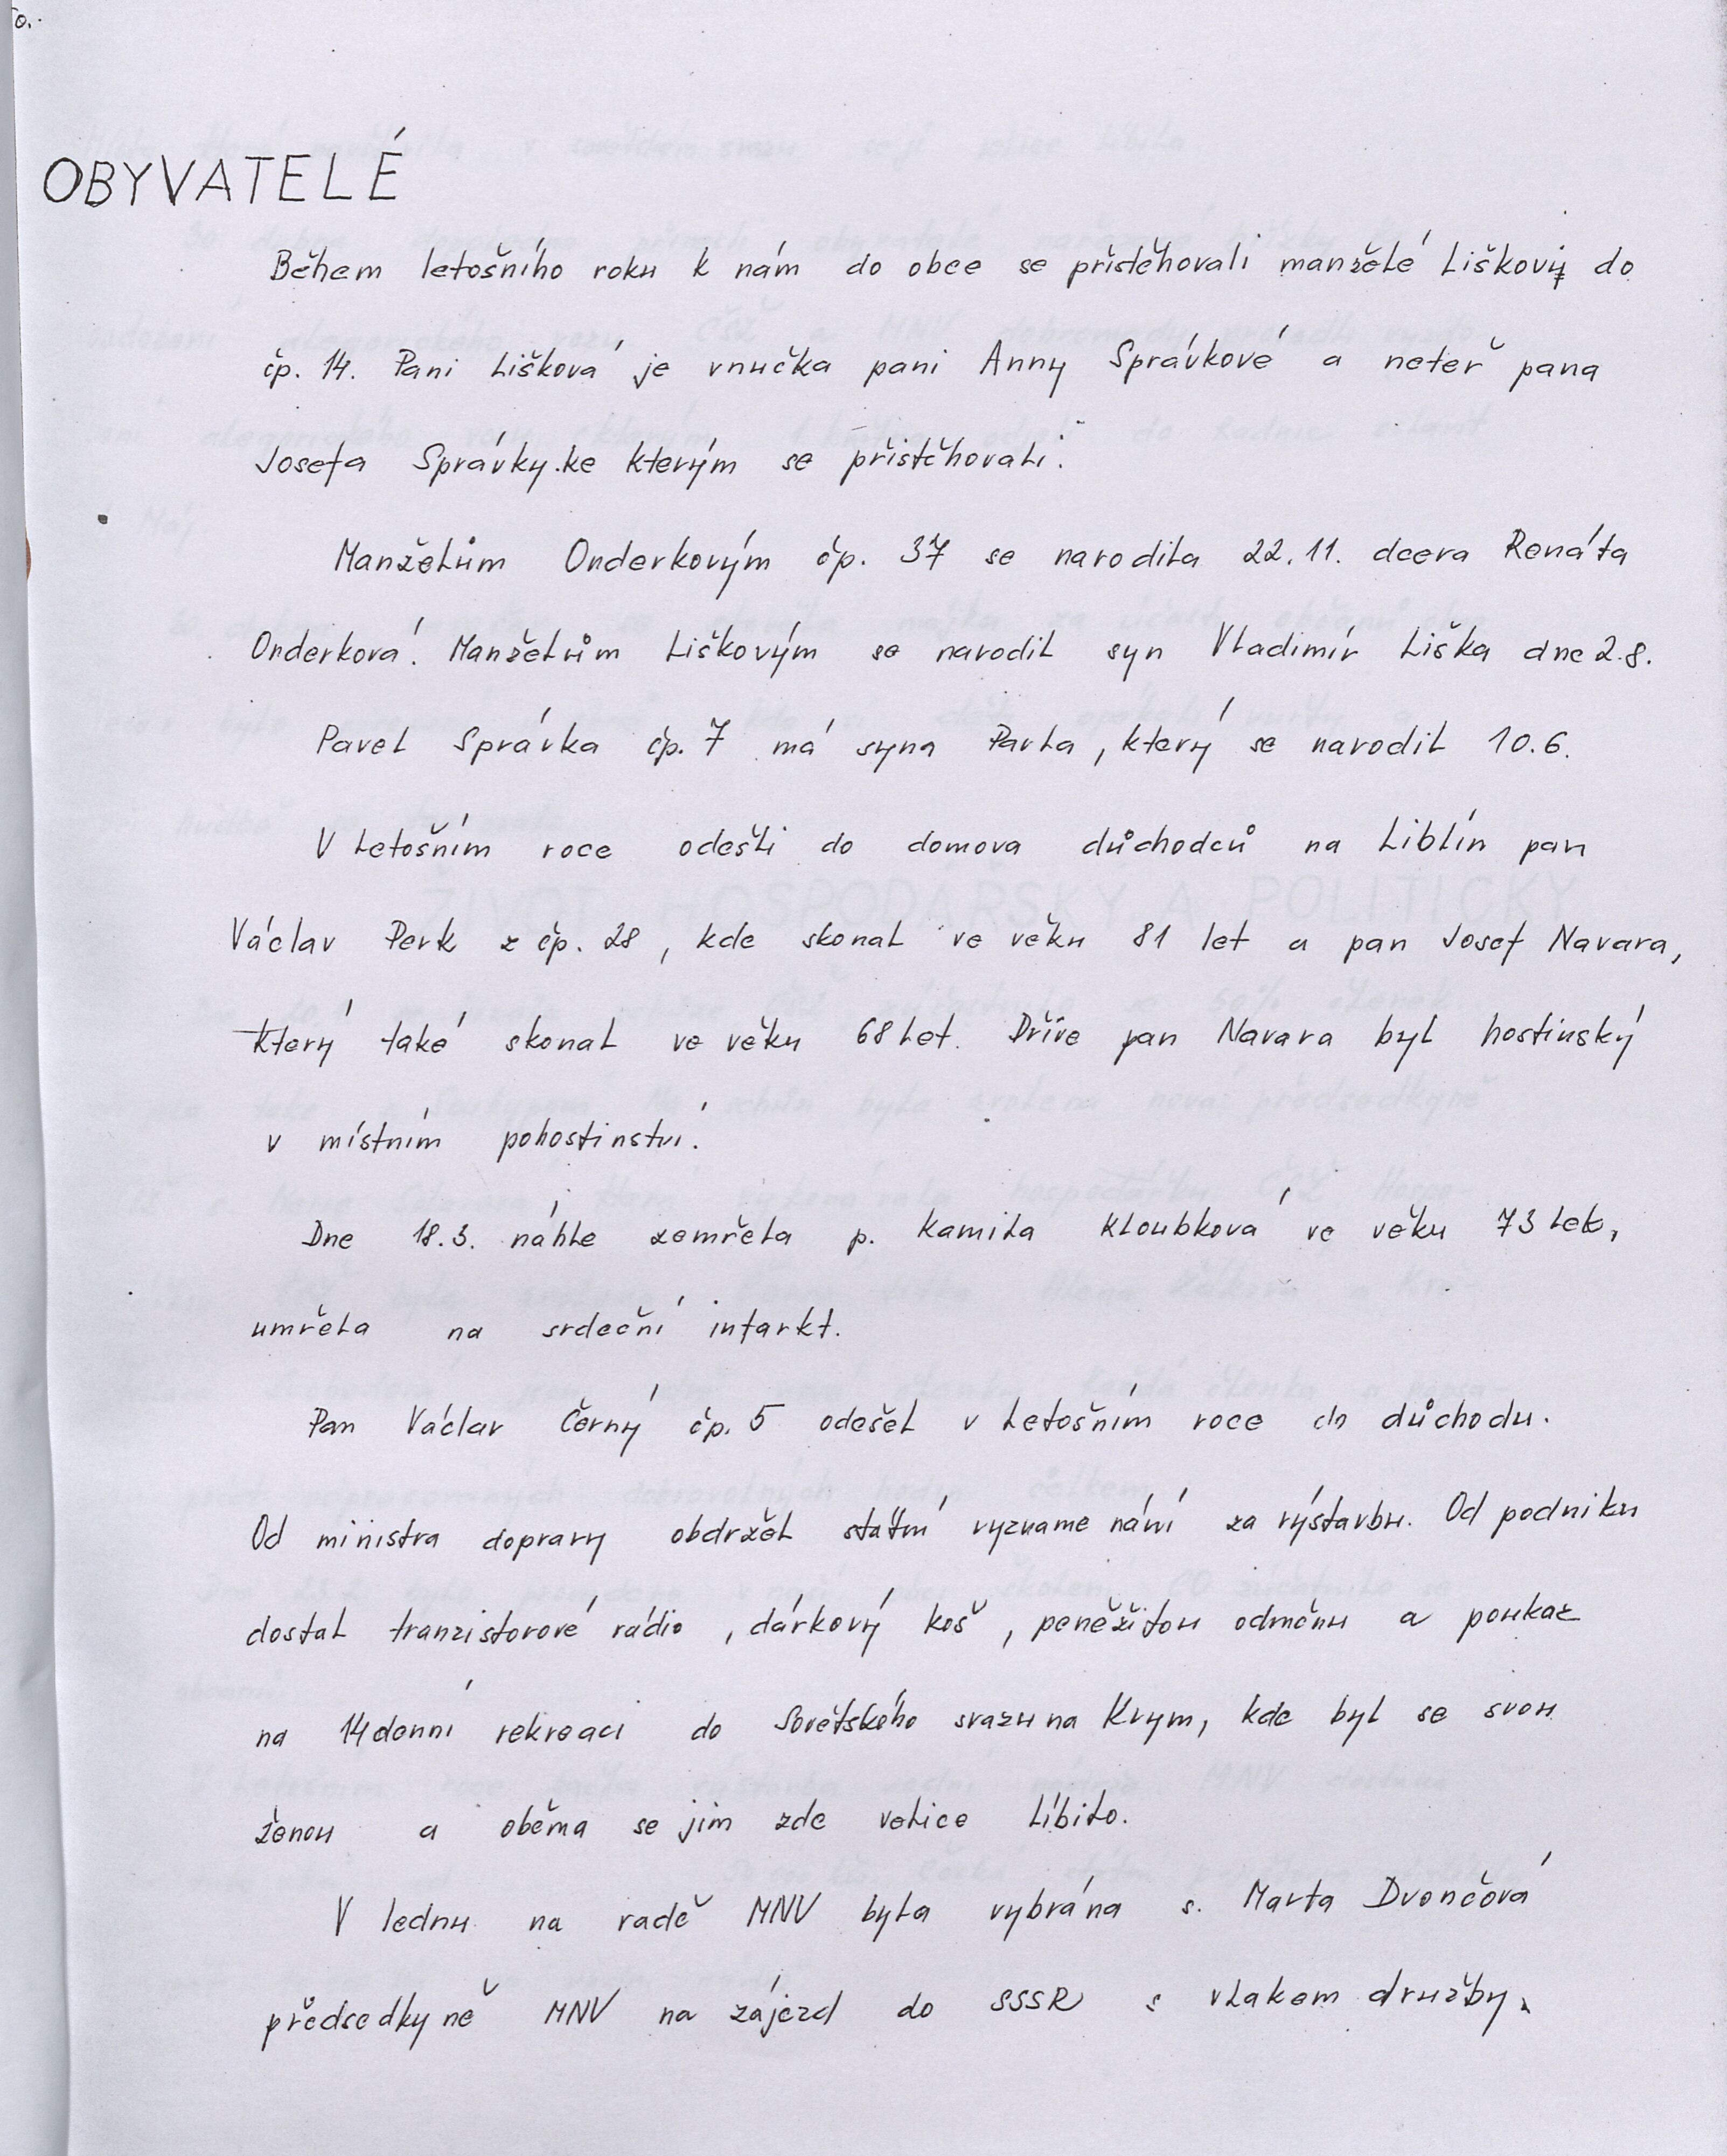 OBYVATELÉ
Během letošního roku k nám do obce se přistěhovali manželé Liškovi do
čp. 14. Pani Lišková je vnučka pani Anny Správkové a neteř pana
Josefa Správky.ke kterým se přistěhovali.
Manželům Onderkovým čp. 37 se narodila 22.11. dcera Renáta
Onderková. Manželům Liškovým se narodil syn Vladimír Liška dne 2.8.
Pavel Správka čp. 7 má syna Pavla, který se narodil 10.6.
V letošním roce odešli do domova důchodců na Liblín pan
Václav Perk z čp. 28, kde skonal ve věku 81 let a pan Josef Navara,
který také skonal ve věku 68 let. Dříve pan Navara byl hostinský
v místním pohostinství.
Dne 18.3. náhle zemřela p. Kamila Kloubková ve věku 73 let,
umřela na srdeční infarkt.
Pan Václav Černý čp. 5 odešel v letošním roce do důchodu.
Od ministra dopravy obdržel státní vyznamenání za výstavbu. Od podniku
dostal tranzistorové rádio, dárkový koš, peněžitou odměnu a poukaz
na 14denní rekreaci do Sovětského svazu na Krym, kde byl se svou
ženou a oběma se jim zde velice líbilo.
V lednu na radě MNV byla vybrána s. Marta Dvončová
předsedkyně MNV na zájezd do SSSR s vlakem družby.